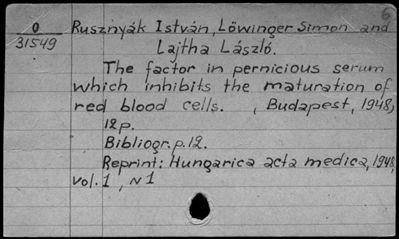 6
O Rusznyák István, Löwinger Simon and
31549 Lajtha László.
The factor in pernicious serum
which inhibits the maturation of
red blood cells. , Budapest, 1948,
12p.
Bibliogr. p. 12.
Reprint: Hungarica acta medica, 1948,
vol. 1 , N 1